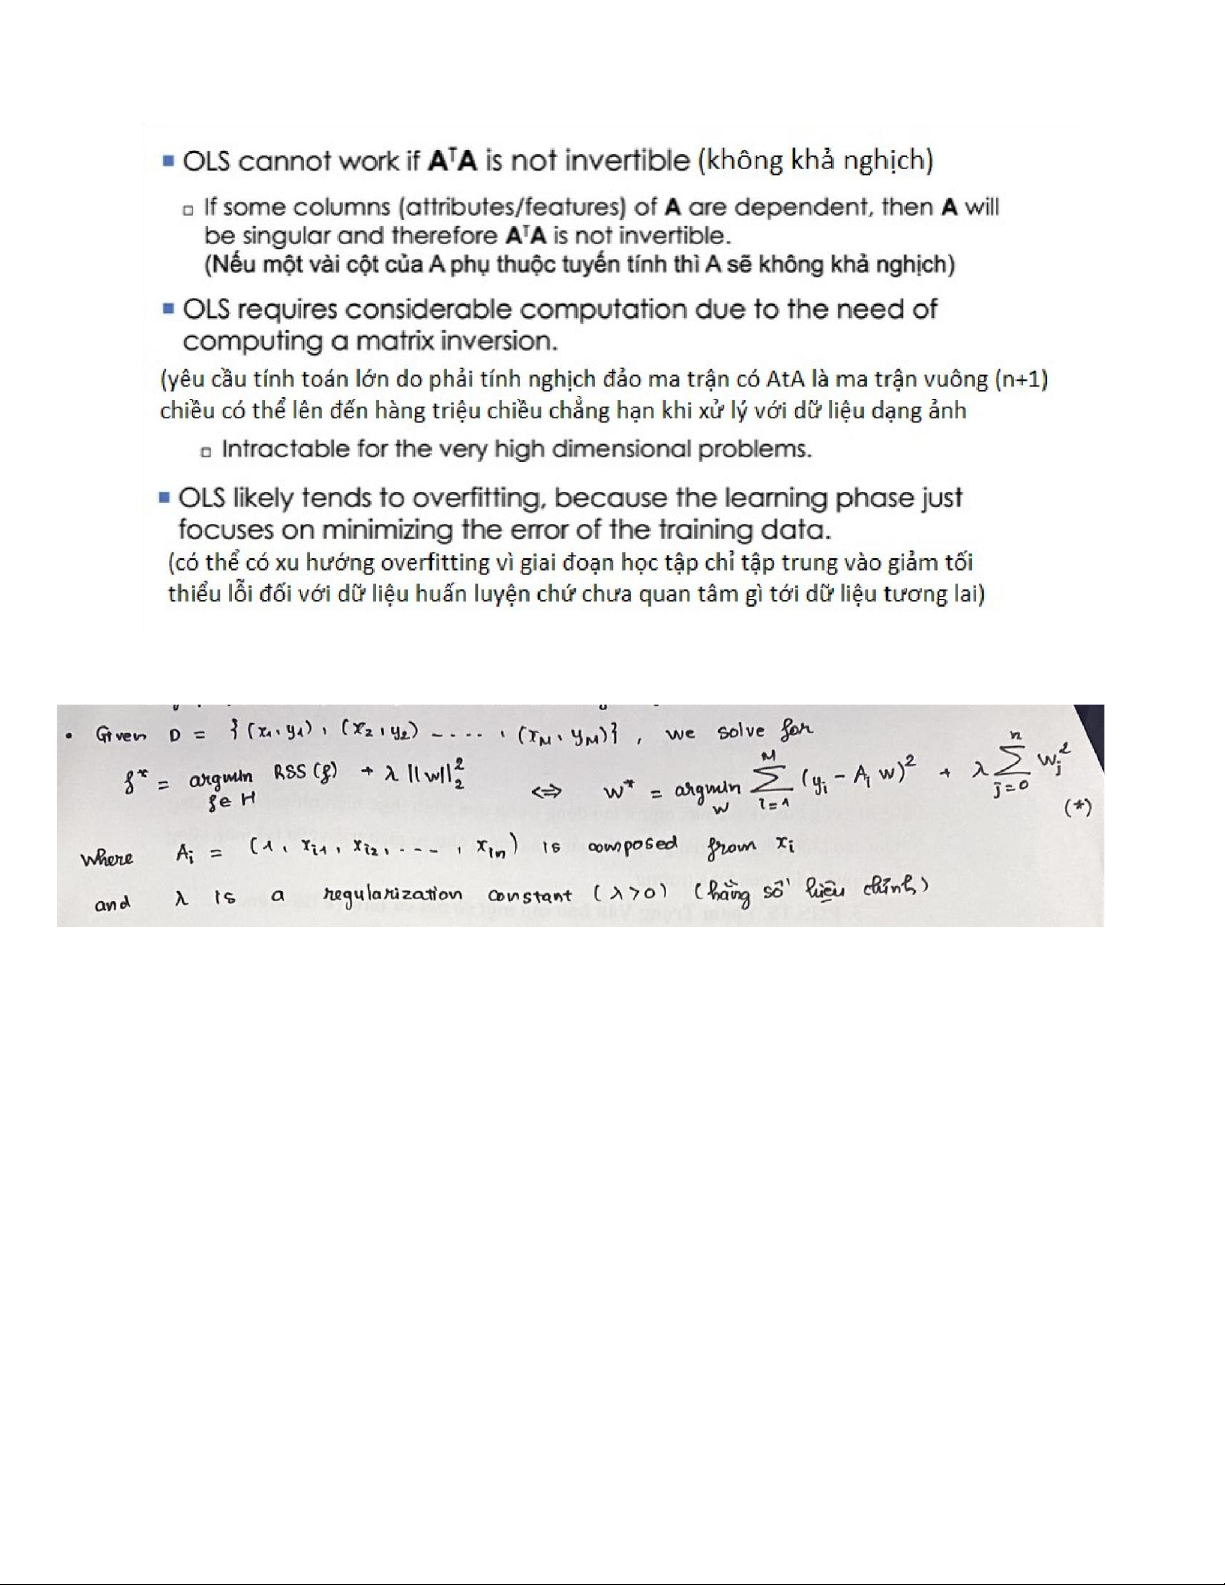 ▪ OLS cannot work if AᵀA is not invertible (không khả nghịch)
▫ If some columns (attributes/features) of A are dependent, then A will
be singular and therefore AᵀA is not invertible.
(Nếu một vài cột của A phụ thuộc tuyến tính thì A sẽ không khả nghịch)
▪ OLS requires considerable computation due to the need of
computing a matrix inversion.
(yêu cầu tính toán lớn do phải tính nghịch đảo ma trận có AtA là ma trận vuông (n+1)
chiều có thể lên đến hàng triệu chiều chẳng hạn khi xử lý với dữ liệu dạng ảnh
▫ Intractable for the very high dimensional problems.
▪ OLS likely tends to overfitting, because the learning phase just
focuses on minimizing the error of the training data.
(có thể có xu hướng overfitting vì giai đoạn học tập chỉ tập trung vào giảm tối
thiểu lỗi đối với dữ liệu huấn luyện chứ chưa quan tâm gì tới dữ liệu tương lai)
• Given D = {(x₁, y₁), (x₂, y₂) ....., (x_M, y_M)}, we solve for
f* = argmin_{f∈H} RSS(f) + λ||w||₂² <=> w* = argmin_w Σ_{i=1}^{M} (y_i - A_i w)² + λ Σ_{j=0}^{n} w_j² (*)
where A_i = (1, x_{i1}, x_{i2}, ...., x_{in}) is composed from x_i
and λ is a regularization constant (λ>0) (hằng số hiệu chỉnh)